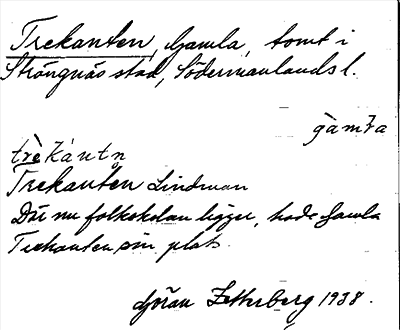 Trekanten, Gamla, tomt i
Strängnäs stad, Södermanlands l.
gàmɫa
trèkántn̥
Trekanten Lindman
Där nu folkskolan ligger, hade Gamla
Trekanten sin plats.
Göran Zetterberg 1938.